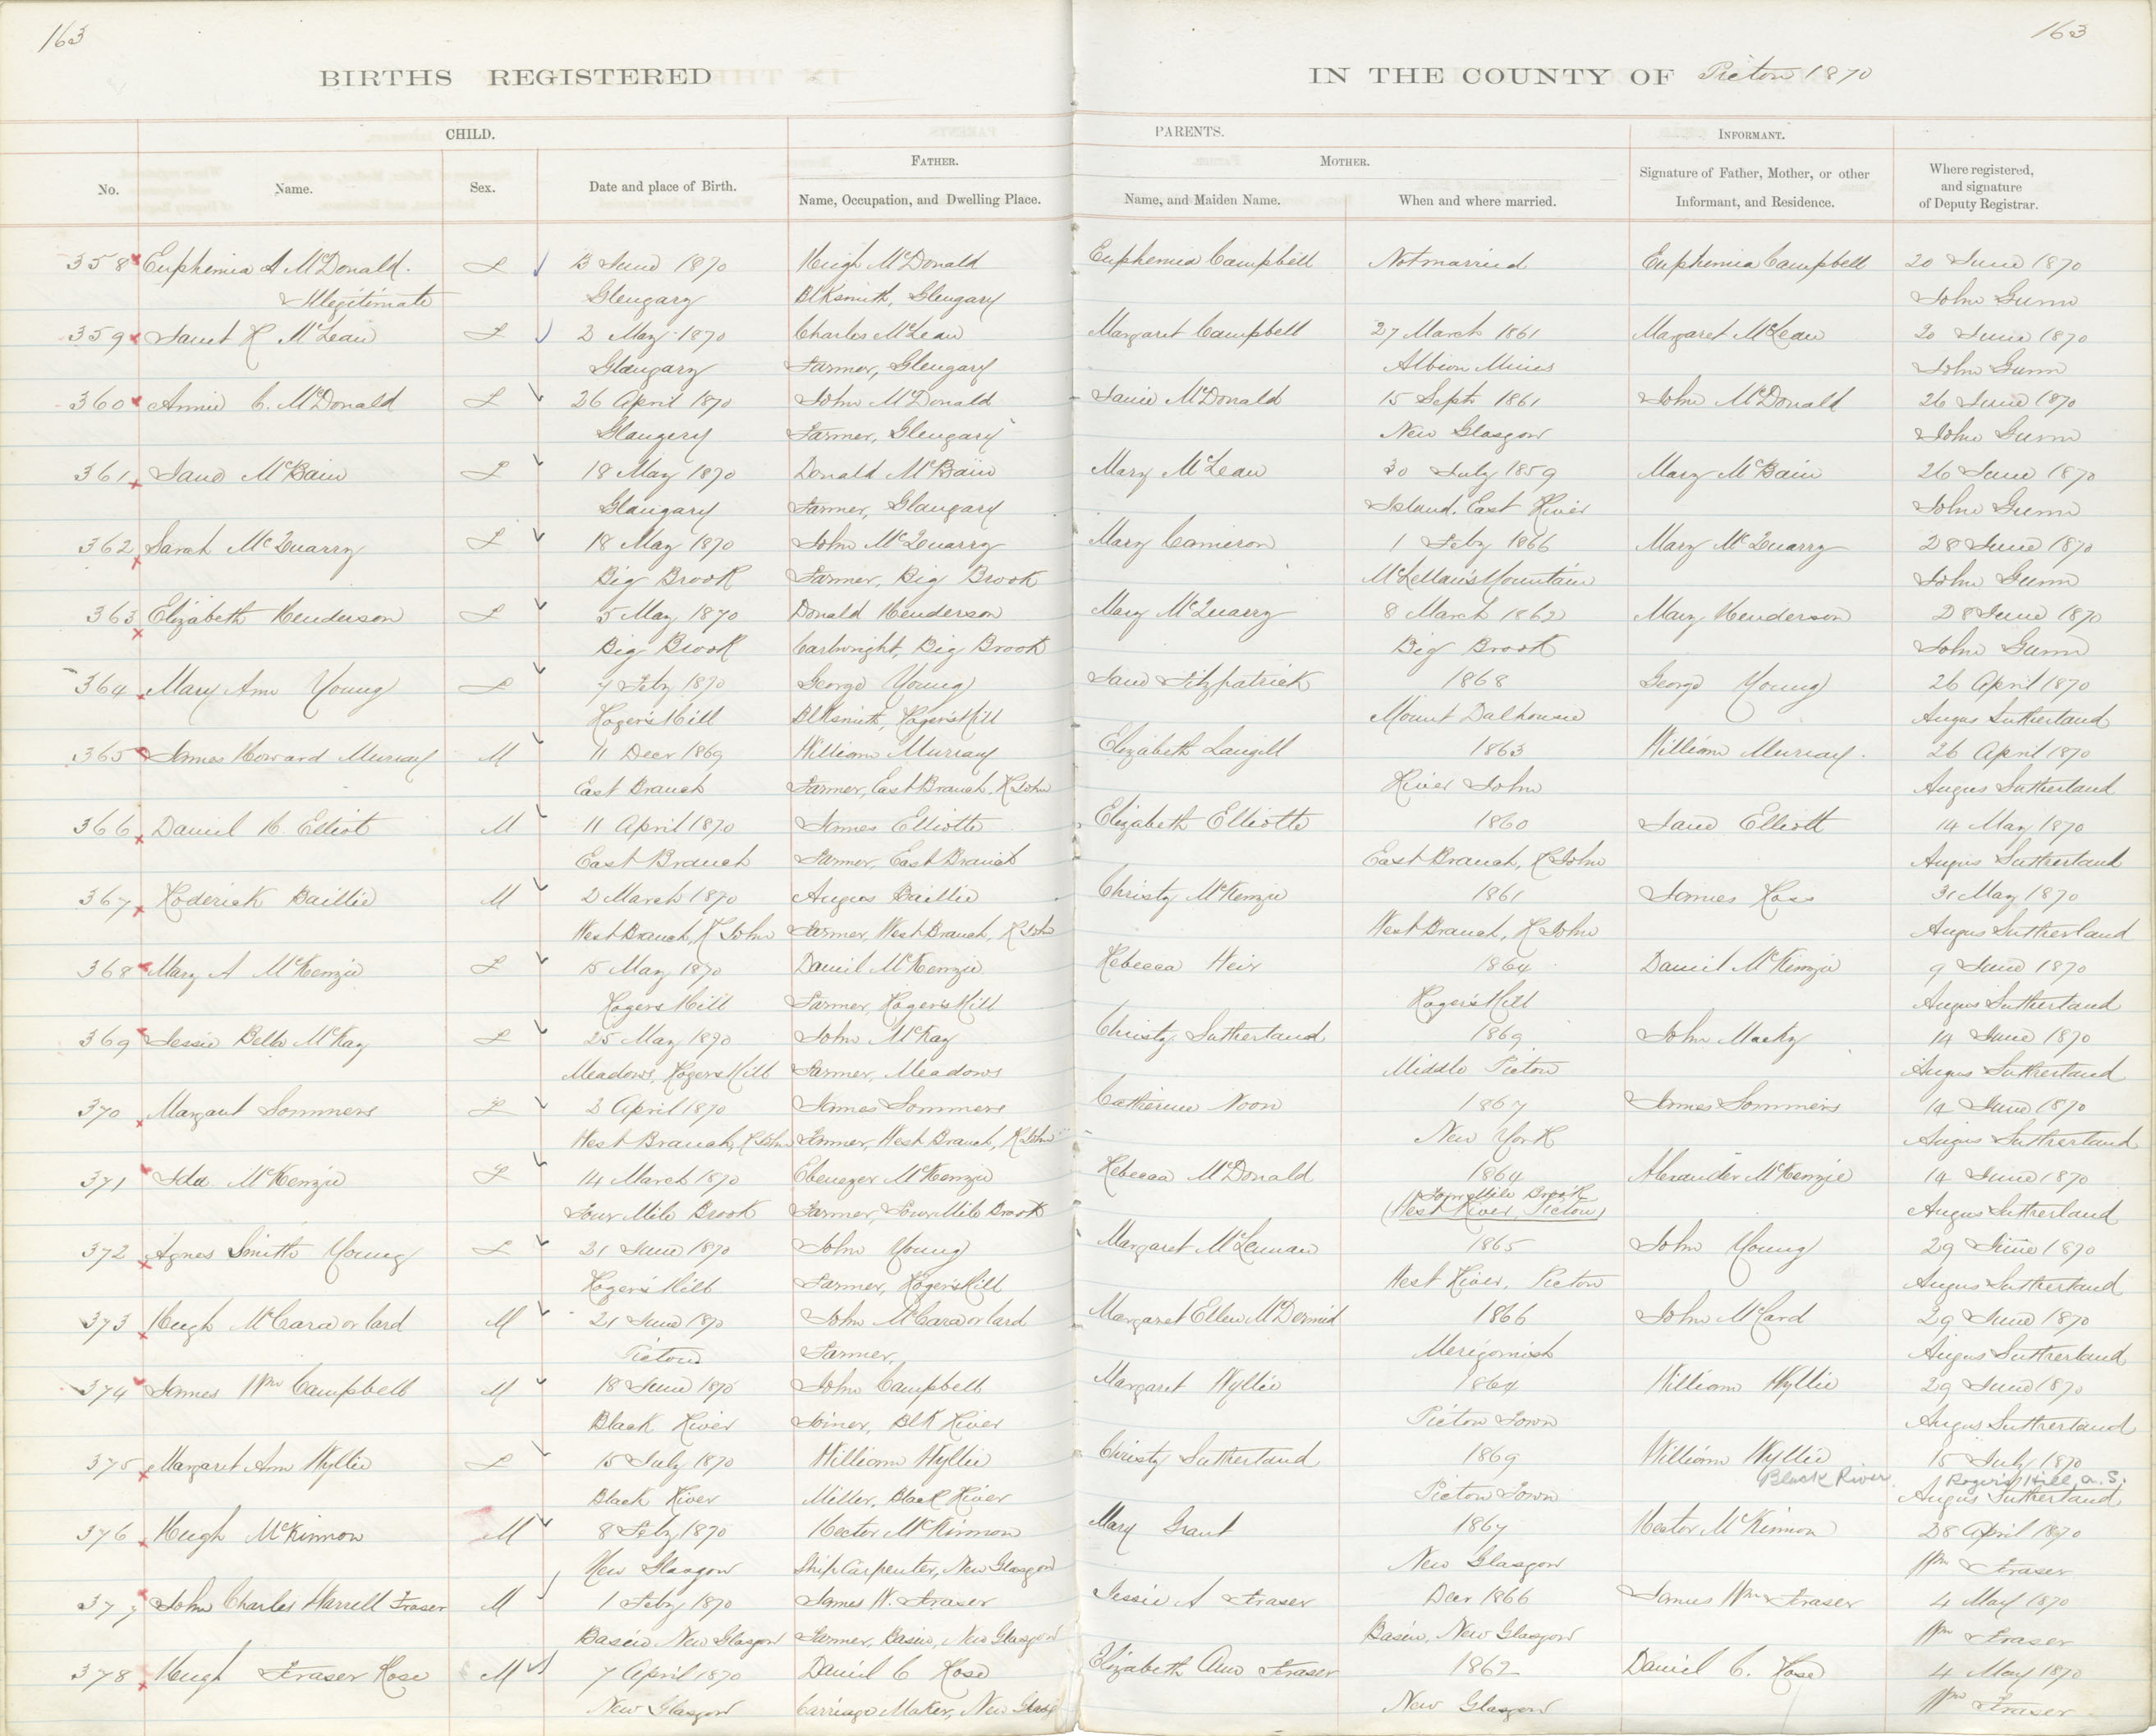 163
163
BIRTHS REGISTERED
IN THE COUNTY OF Picton 1870
CHILD.
PARENTS.
INFORMANT.
FATHER.
MOTHER.
No.
Name.
Sex.
Date and place of Birth.
Name, Occupation, and Dwelling Place.
Name, and Maiden Name.
When and where married.
Signature of Father, Mother, or other
Informant, and Residence.
Where registered,
and signature
of Deputy Registrar.
358 Euphemia A McDonald. F 13 June 1870 Hugh McDonald Euphemia Campbell Not married Euphemia Campbell 20 June 1870
Illegitimate Glengary Blksmith, Glengary John Gunn
359 Janet R McLean F 2 May 1870 Charles McLean Margaret Campbell 27 March 1861 Margaret McLean 20 June 1870
Glangary Farmer, Glengary Albion Mines John Gunn
360 Annie C. McDonald F 26 April 1870 John McDonald Janie McDonald 15 Sept 1861 John McDonald 26 June 1870
Glangery Farmer, Glengary New Glasgow John Gunn
361 Jane McBain F 18 May 1870 Donald McBain Mary McLean 30 July 1859 Mary McBain 26 June 1870
Glangary Farmer, Glangary Island. East River John Gunn
362 Sarah McQuarry F 18 May 1870 John McQuarry Mary Cameron 1 Feby 1866 Mary McQuarry 28 June 1870
Big Brook Farmer, Big Brook McLellan's Mountain John Gunn
363 Elizabeth Henderson F 5 May 1870 Donald Henderson Mary McQuarry 8 March 1862 Mary Henderson 28 June 1870
Big Brook Cartwright, Big Brook Big Brook John Gunn
364 Mary Ann Young F 7 Feby 1870 George Young Jane Fitzpatrick 1868 George Young 26 April 1870
Roger's Hill Blksmith, Roger's Hill Mount Dalhousie Angus Sutherland
365 James Howard Murray M 11 Decr 1869 William Murray Elizabeth Langill 1863 William Murray. 26 April 1870
East Branch Farmer, East Branch, R John River John Angus Sutherland
366 Daniel H. Elliot M 11 April 1870 James Elliotte Elizabeth Elliotte 1860 Jane Elliott 14 May 1870
East Branch Farmer, East Branch East Branch, R John Angus Sutherland
367 Roderick Baillie M 2 March 1870 Angus Baillie Christy McKenzie 1861 James Ross 31 May 1870
West Branch, R John Farmer, West Branch, R John West Branch, R John Angus Sutherland
368 Mary A McKenzie F 15 May 1870 Daniel McKenzie Rebecca Heir 1864 Daniel McKenzie 9 June 1870
Rogers Hill Farmer, Roger's Hill Roger's Hill Angus Sutherland
369 Jessie Bella McKay F 25 May 1870 John McKay Christy Sutherland 1869 John Macky 14 June 1870
Meadows, Rogers Hill Farmer, Meadows Middle Picton Angus Sutherland
370 Margaret Sommers F 3 April 1870 James Sommers Catherine Noon 1867 James Sommers 14 June 1870
West Branch, R John Farmer, West Branch, R John New York Angus Sutherland
371 Ida McKenzie F 14 March 1870 Ebenezer McKenzie Rebecca McDonald 1864 Alexander McKenzie 14 June 1870
Four Mile Brook Farmer, Four Mile Brook Four Mile Brook (West River, Picton) Angus Sutherland
372 Agnes Smith Young F 21 June 1870 John Young Margaret McLennan 1865 John Young 29 June 1870
Roger's Hill Farmer, Roger's Hill West River, Picton Angus Sutherland
373 Hugh McCara or Card M 21 June 1870 John McCara or Card Margaret Ellen McDermid 1866 John McCard 29 June 1870
Picton Farmer, Merigomish Angus Sutherland
374 James Wm Campbell M 18 June 1870 John Campbell Margaret Wyllie 1864 William Wyllie 29 June 1870
Black River Joiner, Blk River Picton Town Angus Sutherland
375 Margaret Ann Wyllie F 15 July 1870 William Wyllie Christy Sutherland 1869 William Wyllie 15 July 1870
Black River Miller, Black River Picton Town Black River Roger's Hill, a. S. Angus Sutherland
376 Hugh McKinnon M 8 Feby 1870 Hector McKinnon Mary Grant 1867 Hector McKinnon 28 April 1870
New Glasgow Ship Carpenter, New Glasgow New Glasgow Wm Fraser
377 John Charles Harrell Fraser M 1 Feby 1870 James W. Fraser Jessie A Fraser Decr 1866 James Wm Fraser 4 May 1870
Basin New Glasgow Farmer, Basin, New Glasgow Basin, New Glasgow Wm Fraser
378 Hugh Fraser Rose M 7 April 1870 Daniel C Rose Elizabeth Ann Fraser 1862 Daniel C. Rose 4 May 1870
New Glasgow Carriage Maker, New Glasg New Glasgow Wm Fraser